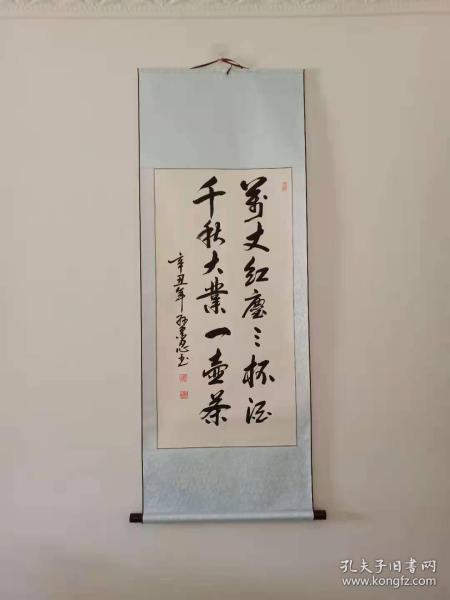 萬丈紅塵三杯酒
千秋大業一壺茶
辛丑年 书
孔夫子旧书网
www.kongfz.com